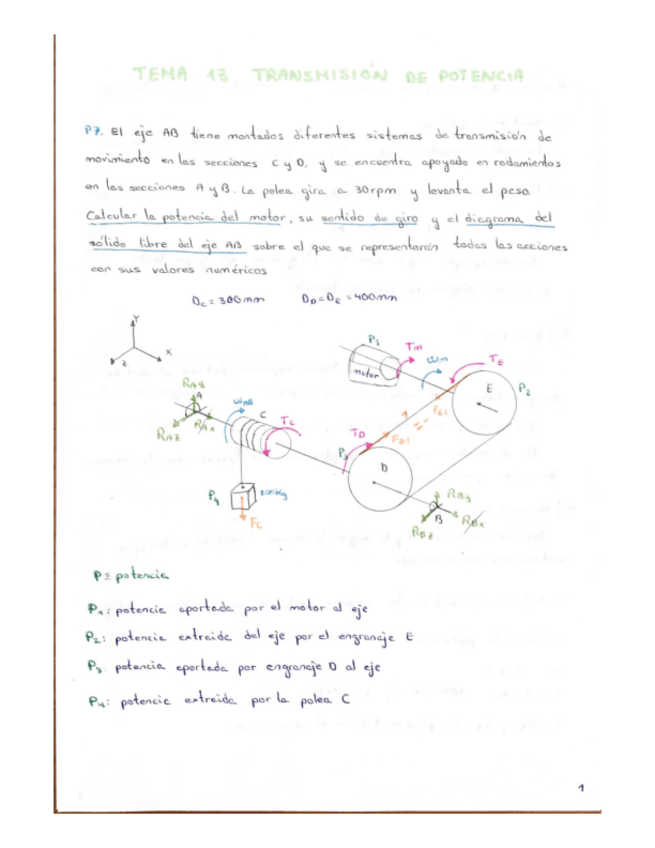 TEMA 13 TRANSMISIÓN DE POTENCIA
P7. El eje AB tiene montados diferentes sistemas de transmisión de
movimiento en las secciones C y D, y se encuentra apoyado en rodamientos
en las secciones A y B. La polea gira a 30rpm y levanta el peso
Calcular la potencia del motor, su sentido de giro y el diagrama del
sólido libre del eje AB sobre el que se representarán todas las acciones
con sus valores numéricos
Dc = 300mm DD = DE = 400mm
Y
X
Z
P1
Tm
motor
Wm
TE
E
P2
RAy
A
RAx
RAz
WAB
C
Tc
TD
P3
FD1
D
P4
200kg
Fc
RBy
B
RBx
RBz
P ≡ potencia
P1: potencia aportada por el motor al eje
P2: potencia extraida del eje por el engranaje E
P3: potencia aportada por engranaje D al eje
P4: potencia extraida por la polea C
1